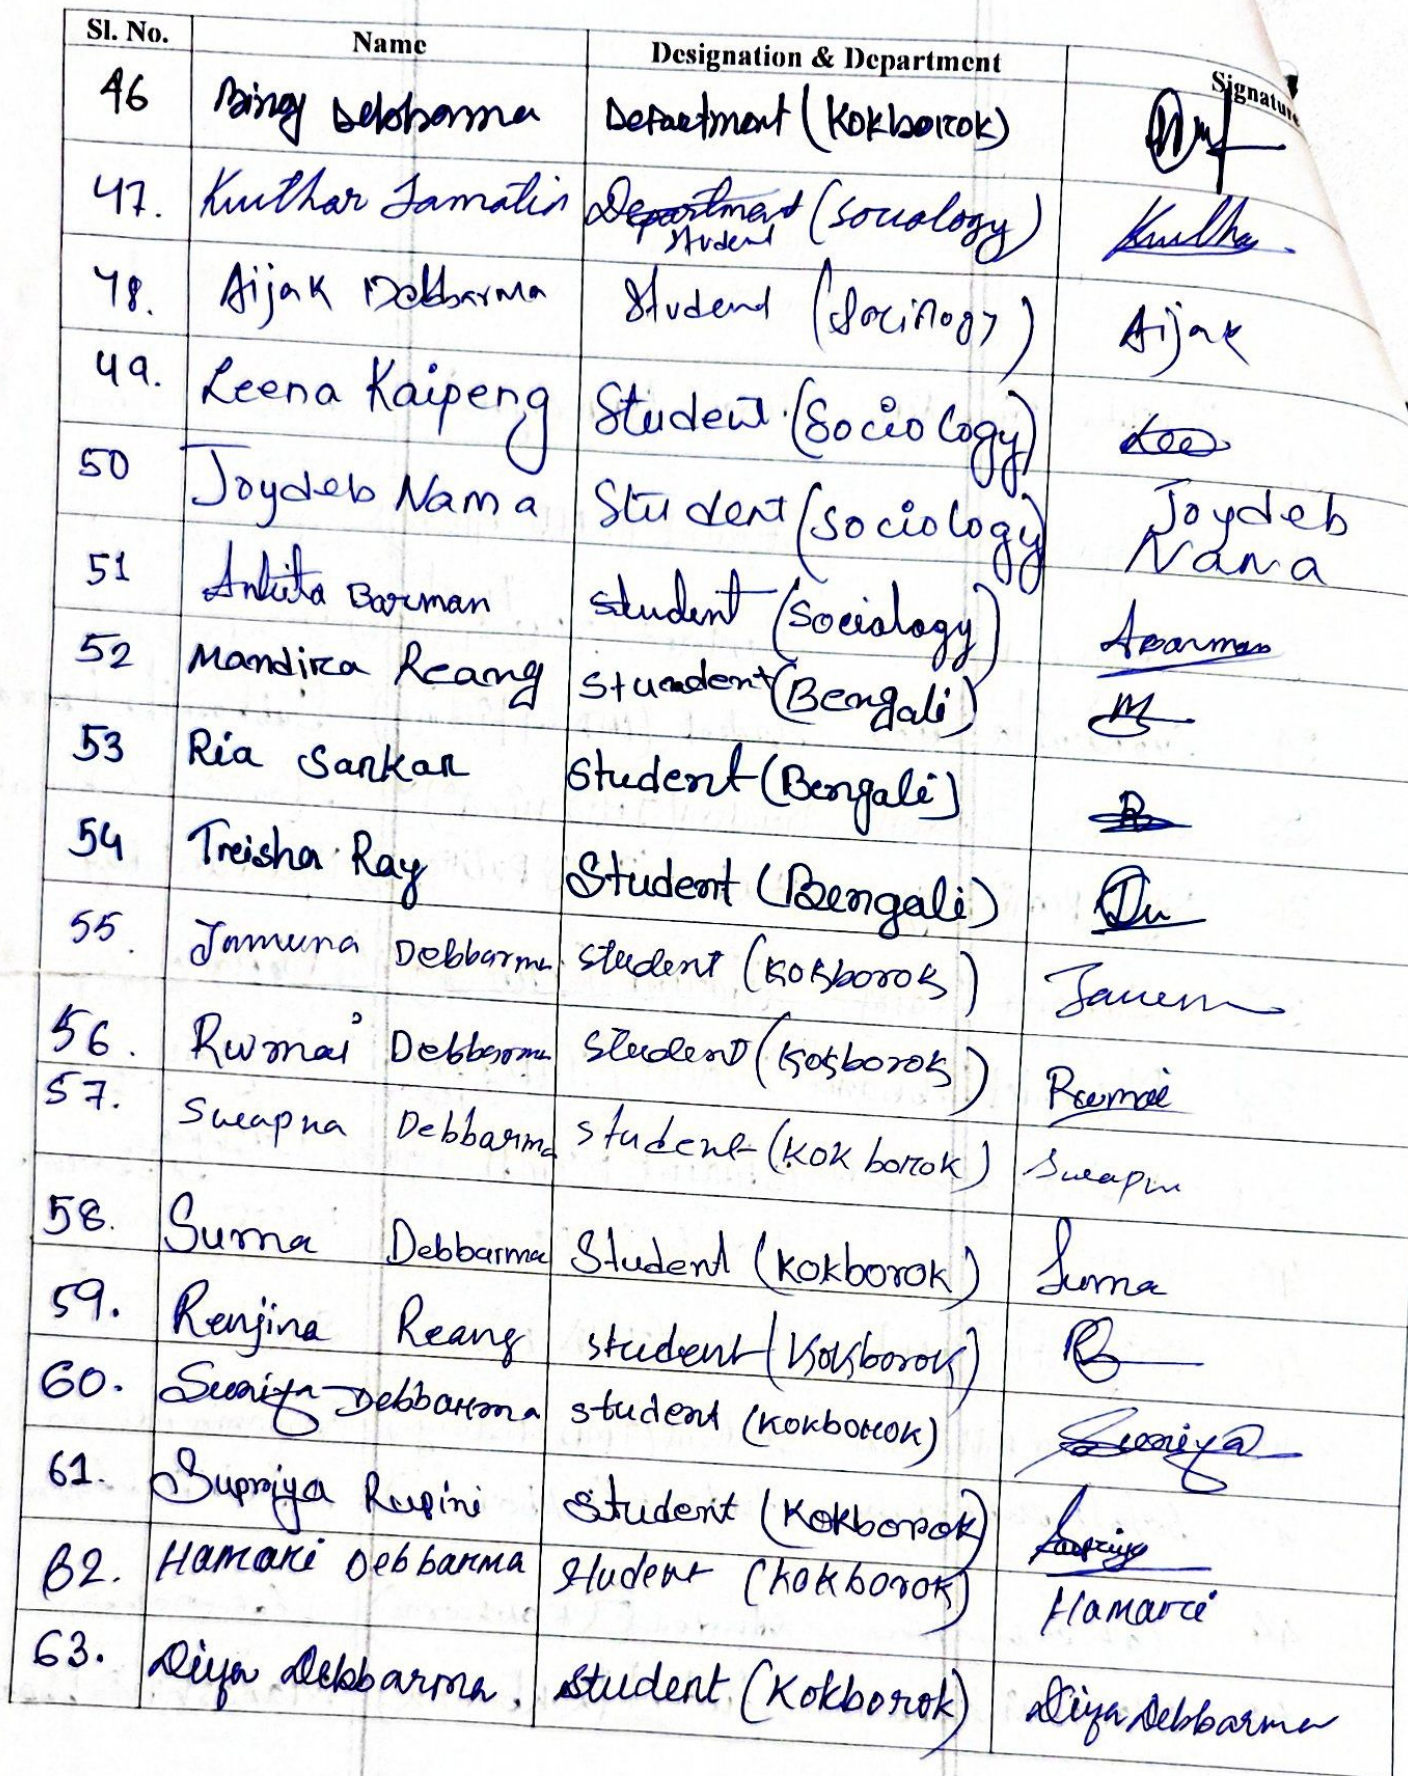 Sl. No. Name Designation & Department Signature
46 Debbarma Department (Kokborok)
47. Kuthar Jamatia Department (Sociology)
Student
48. Aijak Debbarma Student (Socilogy) Aijak
49. Leena Kaipeng Student (Sociology) Lee
50 Joydeb Nama Student (Sociology) Joydeb
Nama
51 Ankita Barman Student (Sociology) ABarman
52 Mandira Reang Student (Bengali) M
53 Ria Sarkar Student (Bengali) R
54 Treisha Ray Student (Bengali)
55. Jamuna Debbarma student (Kokborok)
56. Rumai Debbarma Student (Kokborok) Rumai
57. Swapna Debbarma Student (Kokborok) Swapn
58. Suma Debbarma Student (Kokborok) Suma
59. Renjina Reang student (Kokborok) R
60. Suniya Debbarma student (Kokborok) Suniya
61. Supriya Rupini Student (Kokborok) Supriya
62. Hamari Debbarma Student (Kokborok) Hamari
63. Diya Debbarma. Student (Kokborok) Diya Debbarma